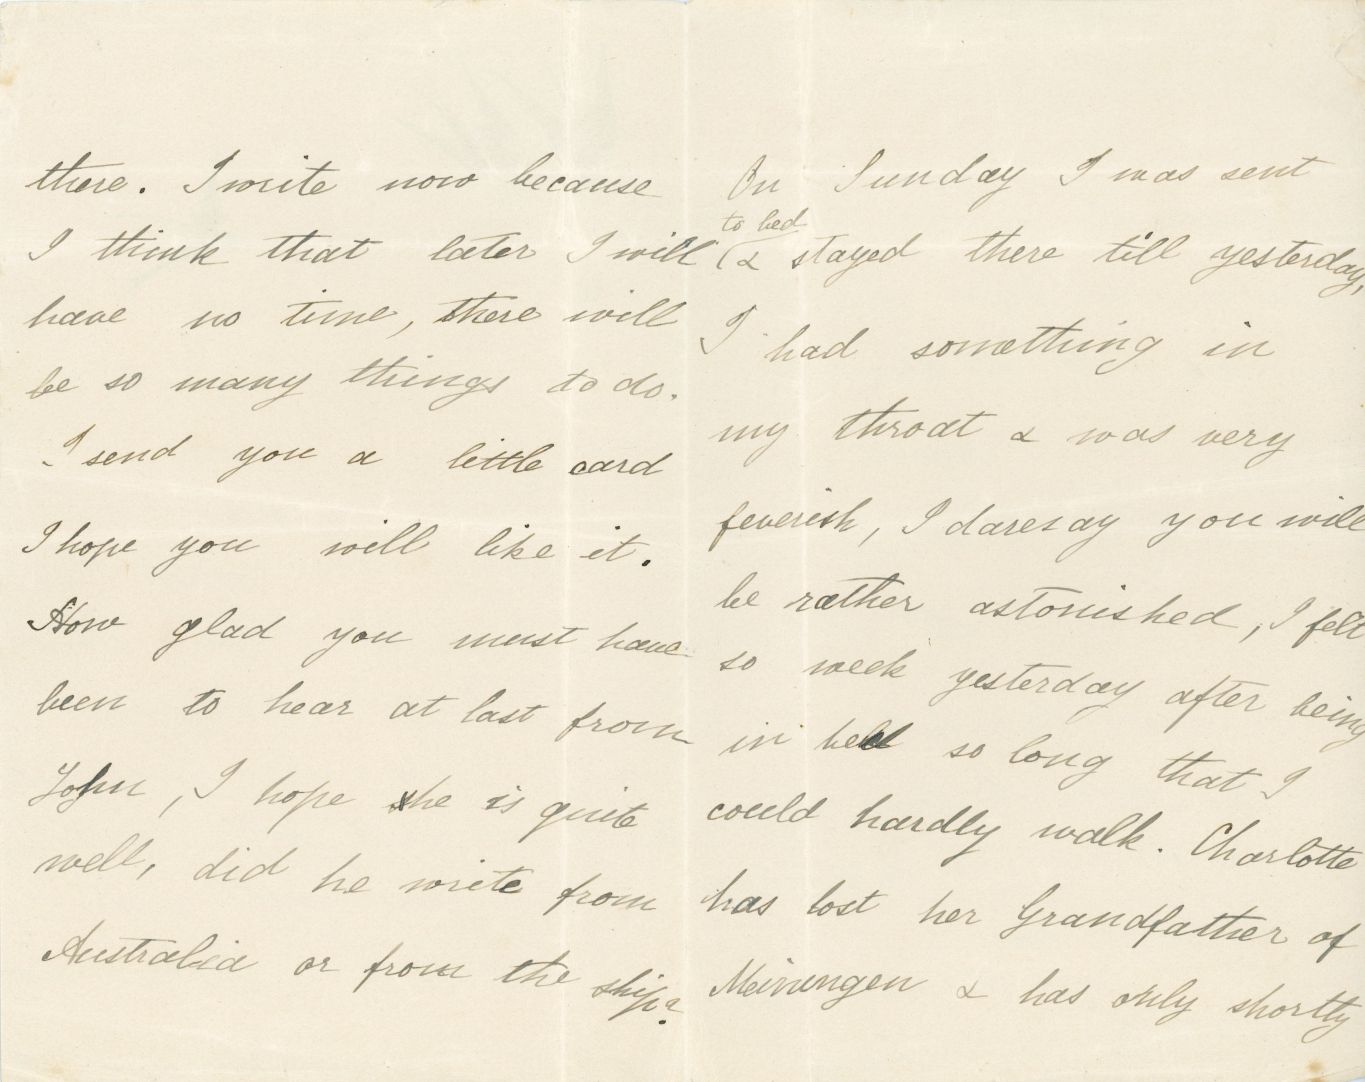 there. I write now because
I think that later I will
have no time, there will
be so many things to do.
I send you a little card
I hope you will like it.
How glad you must have
been to hear at last from
John, I hope he is quite
well, did he write from
Australia or from the ship?
On Sunday I was sent
to bed
& stayed there till yesterday,
I had something in
my throat & was very
feverish, I daresay you will
be rather astonished, I felt
so week yesterday after being
in bed so long that I
could hardly walk. Charlotte
has lost her Grandfather of
Meinengen & has only shortly